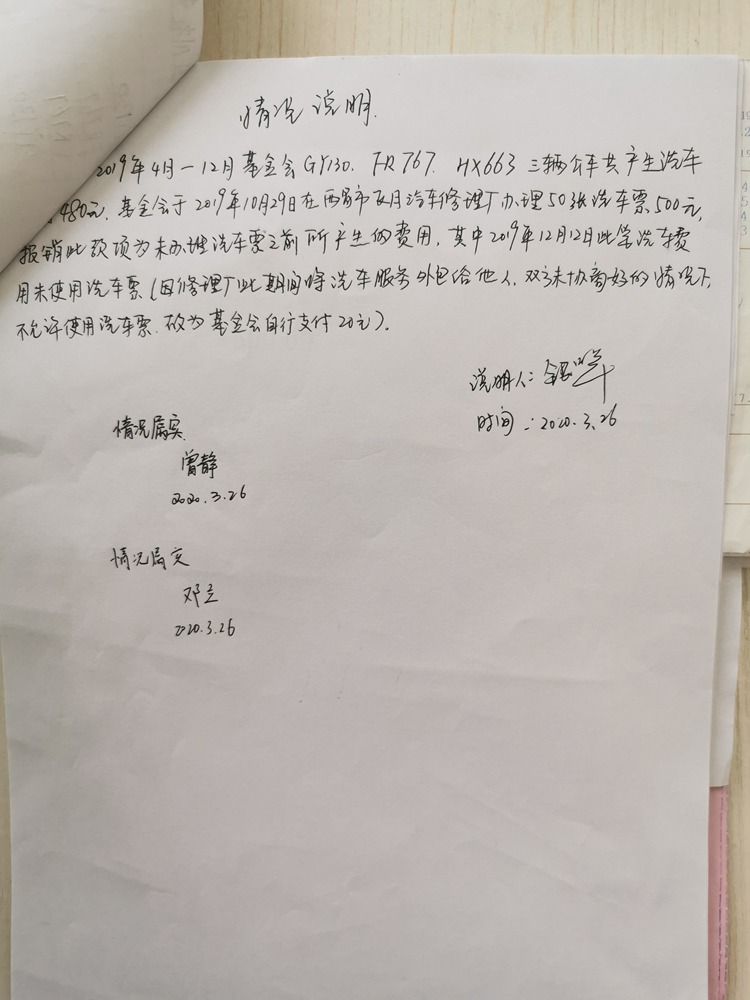 情况说明.
2019年4月一12月基金会GY130. FR767. HX663 三辆公车共产生洗车
480元. 基金会于2019年10月29日在西昌市 月汽车修理厂办理50张洗车票、500元,
报销此款项为未办理洗车票之前所产生的费用, 其中2019年12月12日此笔洗车费
用未使用洗车票(因修理厂此期间将洗车服务外包给他人, 双方未协商好的情况下,
不允许使用洗车票. 故为基金会自行支付20元).
说明人:
时间:2020.3.26
情况属实.
曾静
2020.3.26
情况属实
邓立
2020.3.26